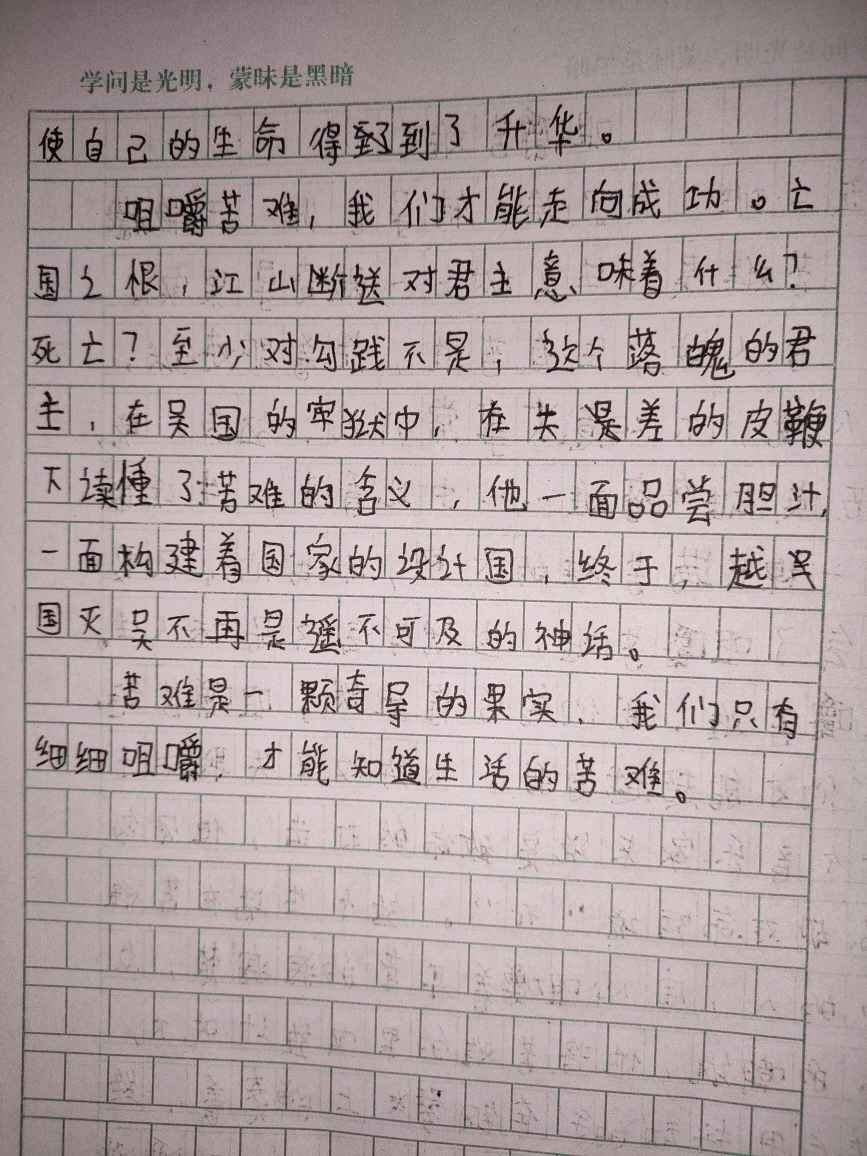 学问是光明，蒙昧是黑暗
使自己的生命得到了升华。
咀嚼苦难，我们才能走向成功。亡
国之根，江山断送对君主意味着什么？
死亡？至少对勾践不是，这个落魄的君
主，在吴国的牢狱中，在失是差的皮鞭
下读懂了苦难的含义，他一面品尝胆汁，
一面构建着国家的设计国，终于，越
国灭吴不再是遥不可及的神话。
苦难是一颗奇导的果实，我们只有
细细咀嚼，才能知道生活的苦难。